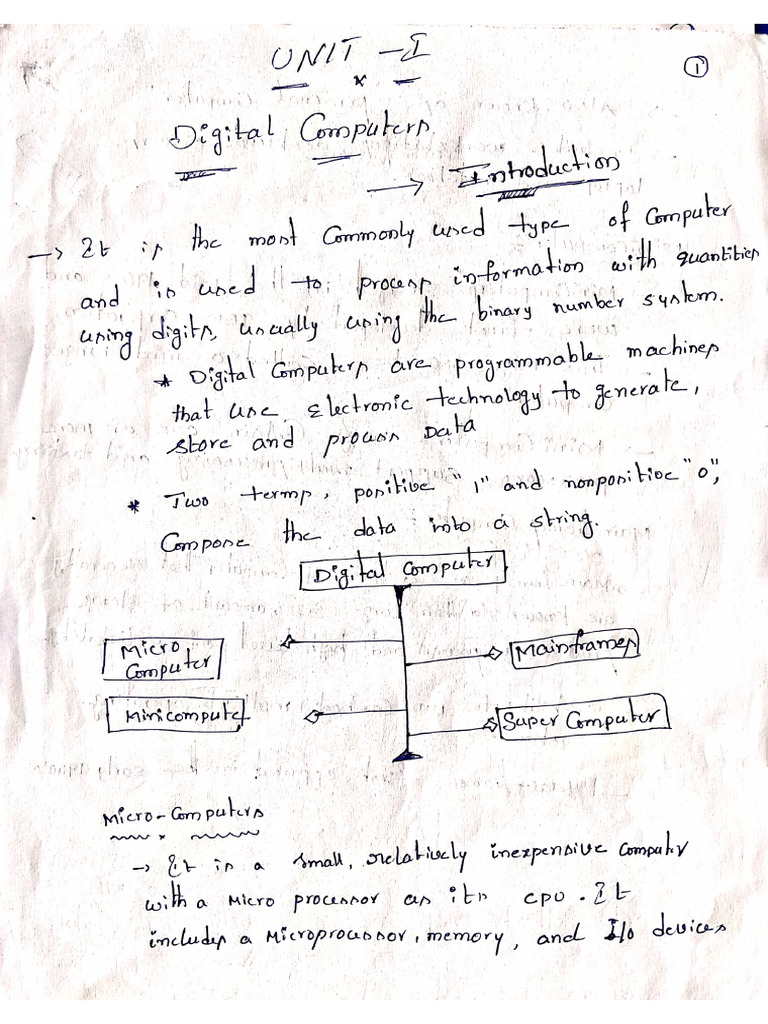 UNIT - I
1
Digital Computers
→ Introduction
→ It is the most Commonly used type of Computer
and is used to process information with quantities
using digits, usually using the binary number system.
* Digital Computers are programmable machines
that use Electronic technology to generate,
store and process Data
* Two terms, positive "1" and nonpositive "0",
Compose the data into a string.
Digital Computer
Micro
Computer
Mainframes
Minicomputer
Super Computer
Micro-Computers
→ It is a small, relatively inexpensive Computer
with a Micro processor as its CPU. It
includes a Microprocessor, memory, and I/o devices